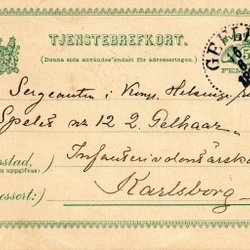 TJENSTEBREFKORT.
(Denna sida användes endast för adresseringen.)
GEFLE
5
FEM
Sergeanten i Kongl. Helsinge
Spelés No 12 2. Pelhaar
stad,
en uppgifves:
Infanterivolontärskol
essort:)
Karlsborg